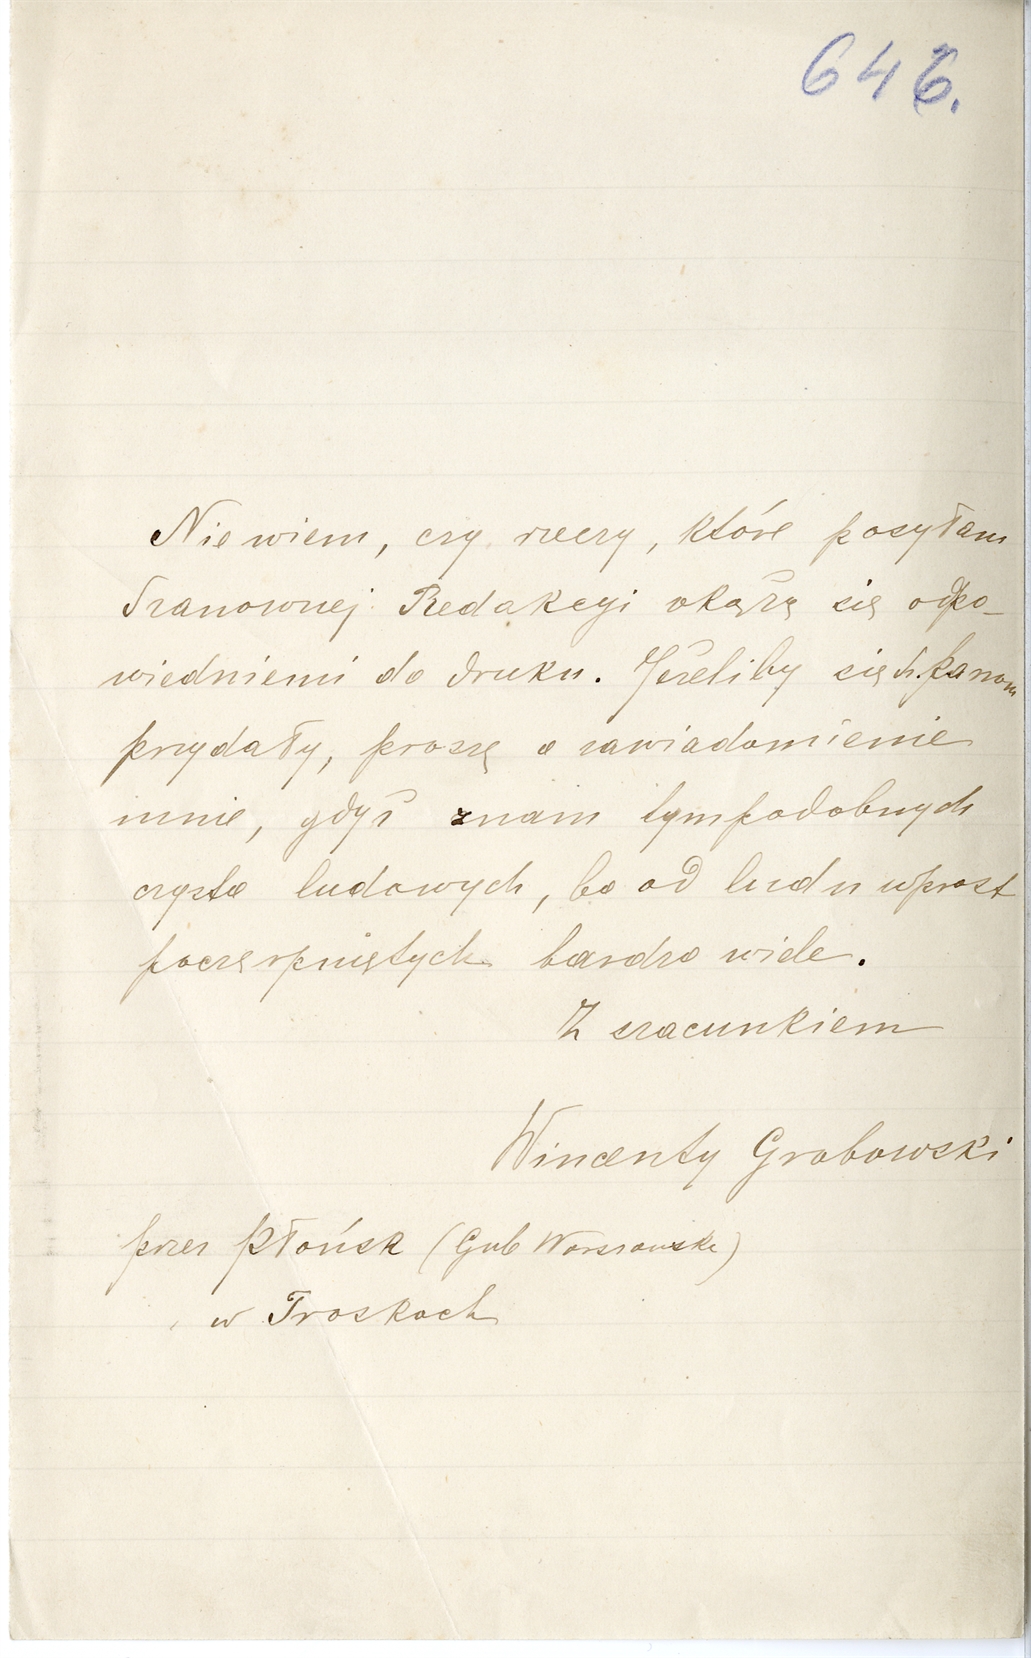 646.
Nie wiem, czy rzeczy, które posyłam
Szanownej Redakcyi okażą się odpo-
wiedniemi do druku. Jeżeliby się Sz. panom
przydały, proszę o zawiadomienie
mnie, gdyż znam tympodobnych
czysto ludowych, bo od ludu wprost
poczerpniętych bardzo wiele.
Z szacunkiem
Wincenty Grabowski
przez Płońsk (Gub Warszawska)
w Troskach